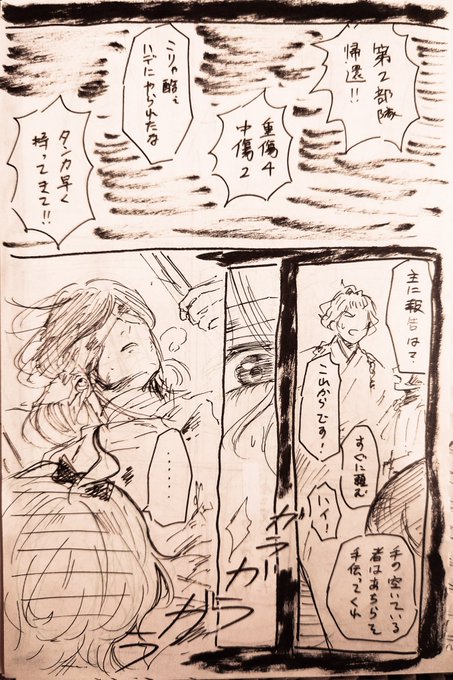 第2部隊
帰還!!
重傷4
中傷2
こりゃ酷ぇ
ハデにやられたな
タンカ早く
持ってきて!!
主に報告は?
これからです!
すぐに頼む
ハイ!
手の空いている
者はあちらを
手伝ってくれ
ガラ
ガラ
ガラ
......